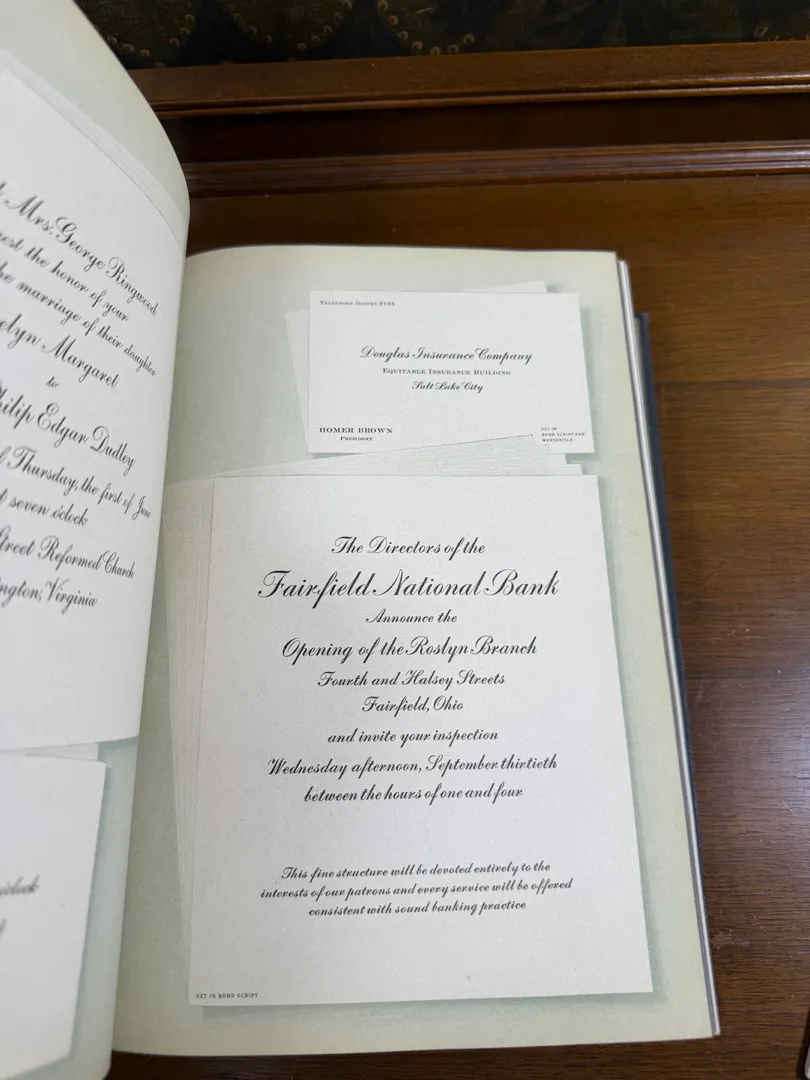 Mrs. George Ringwood
the honor of your
marriage of their daughter
Margaret
to
Edgar Dudley
Thursday, the first of June
seven o'clock
Reformed Church
Virginia
Telephone Desert 8165
Douglas Insurance Company
Equitable Insurance Building
Salt Lake City
HOMER BROWN
President
SET IN
BOND SCRIPT AND
MERCANTILE
The Directors of the
Fairfield National Bank
Announce the
Opening of the Roslyn Branch
Fourth and Halsey Streets
Fairfield, Ohio
and invite your inspection
Wednesday afternoon, September thirtieth
between the hours of one and four
This fine structure will be devoted entirely to the
interests of our patrons and every service will be offered
consistent with sound banking practice
SET IN BOND SCRIPT